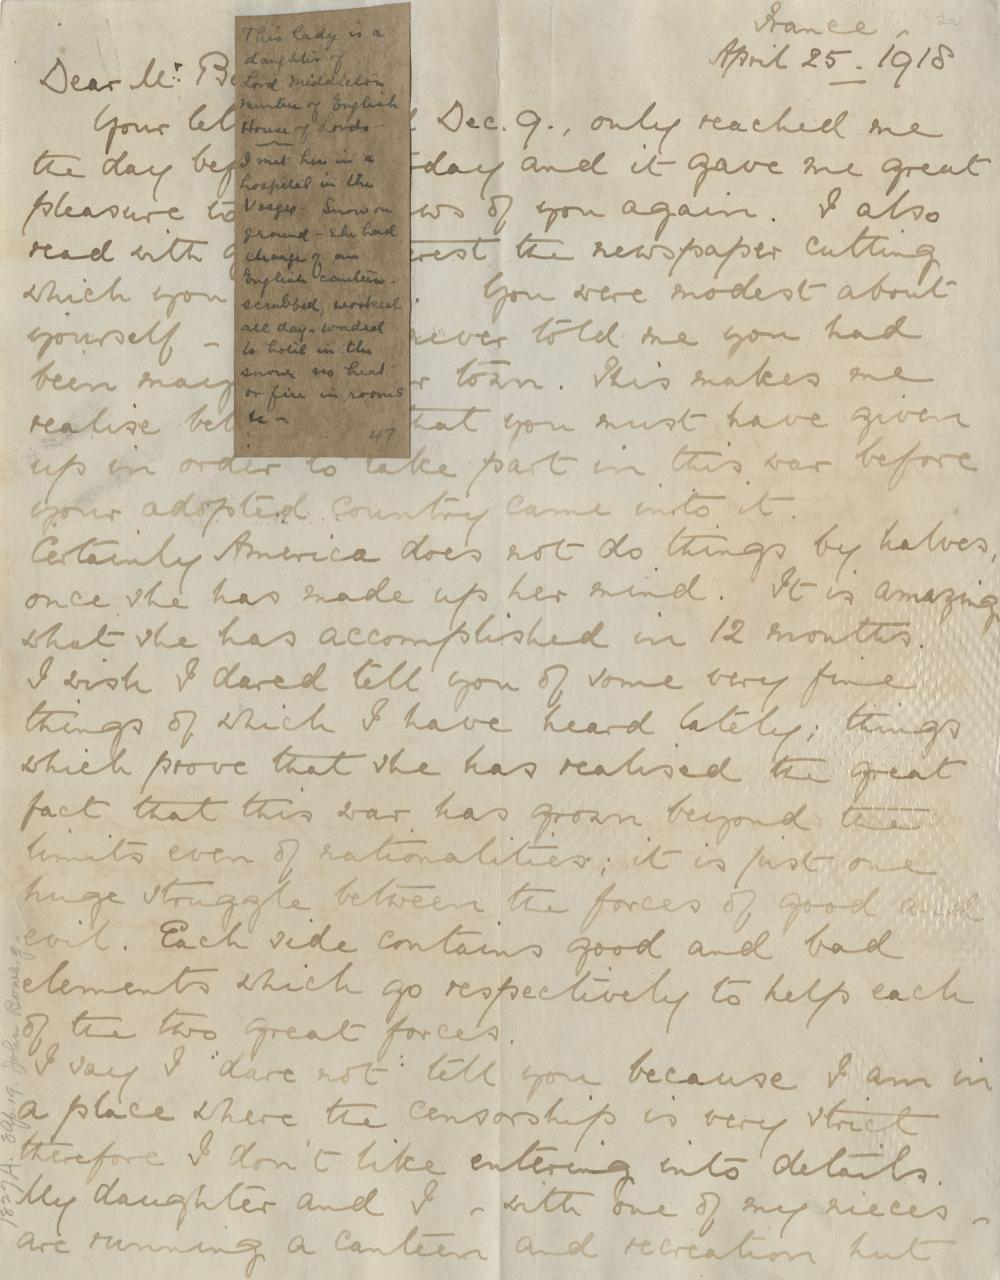 France,
2a
April 25. 1918
Dear Mr. B
Your let Dec. 9., only reached me
the day bef day and it gave me great
pleasure to ws of you again. I also
read with erest the newspaper cutting
which you . You were modest about
yourself – never told me you had
been may r town. This makes me
realise bet that you must have given
up in order to take part in this war before
your adopted country came into it.
Certainly America does not do things by halves,
once she has made up her mind. It is amazing
what she has accomplished in 12 months.
I wish I dared tell you of some very fine
things of which I have heard lately; things
which prove that she has realised the great
fact that this war has grown beyond the
limits even of nationalities; it is just one
huge struggle between the forces of good and
evil. Each side contains good and bad
elements which go respectively to help each
of the two great forces.
I say I "dare not" tell you because I am in
a place where the censorship is very strict
therefore I don't like entering into details.
My daughter and I – with one of my nieces –
are running a canteen and recreation hut
This lady is a
daughter of
Lord Middleton
member of English
House of Lords –
I met her in a
hospital in the
Vosges – Snow on
ground – she had
charge of an
English canteen –
scrubbed, worked
all day – waded
to hotel in the
snow no heat
or fire in rooms
&c –
47
1837A. 3Ap.19. John Borne.g.